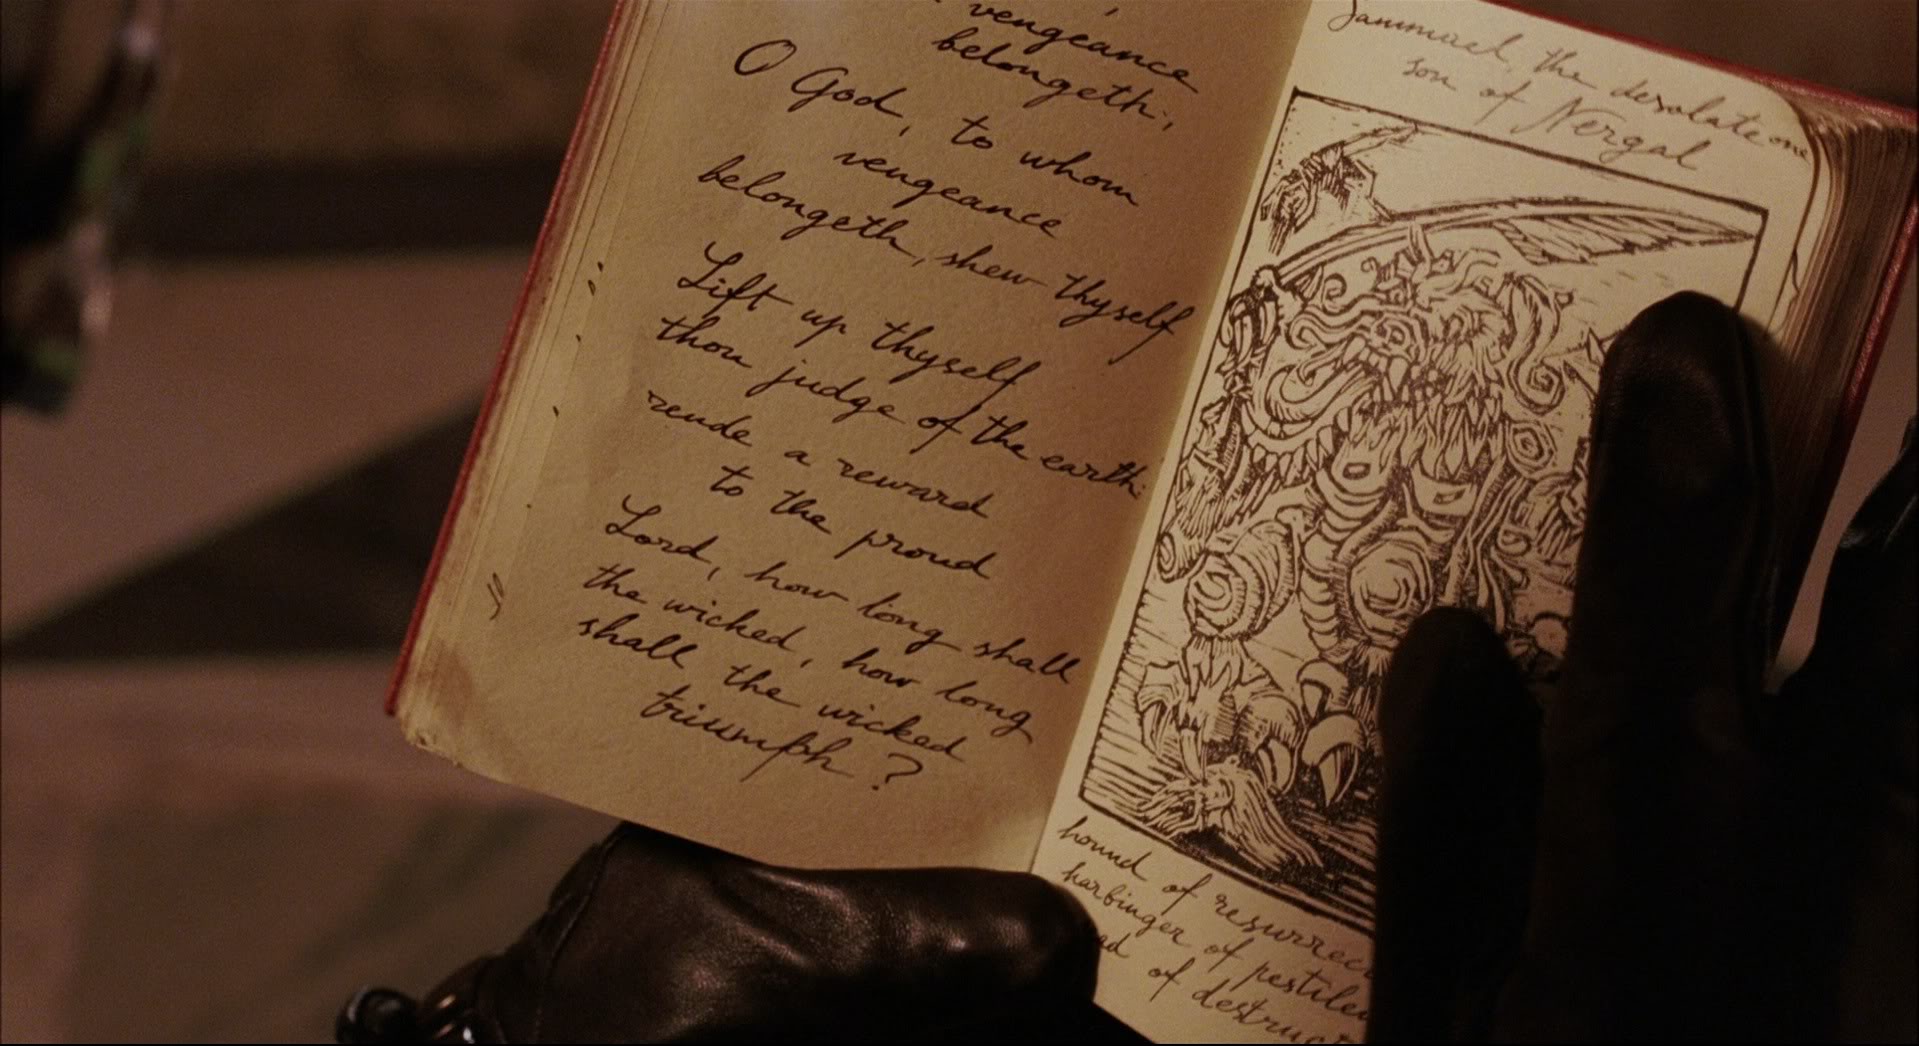 vengeance
belongeth;
O God, to whom
vengeance
belongeth, shew thyself
Lift up thyself
thou judge of the earth:
rende a reward
to the proud
Lord, how long shall
the wicked, how long
shall the wicked
triumph?
Sammael, the desolate one
son of Nergal
hound of resurrec
harbinger of pestilen
of destruct